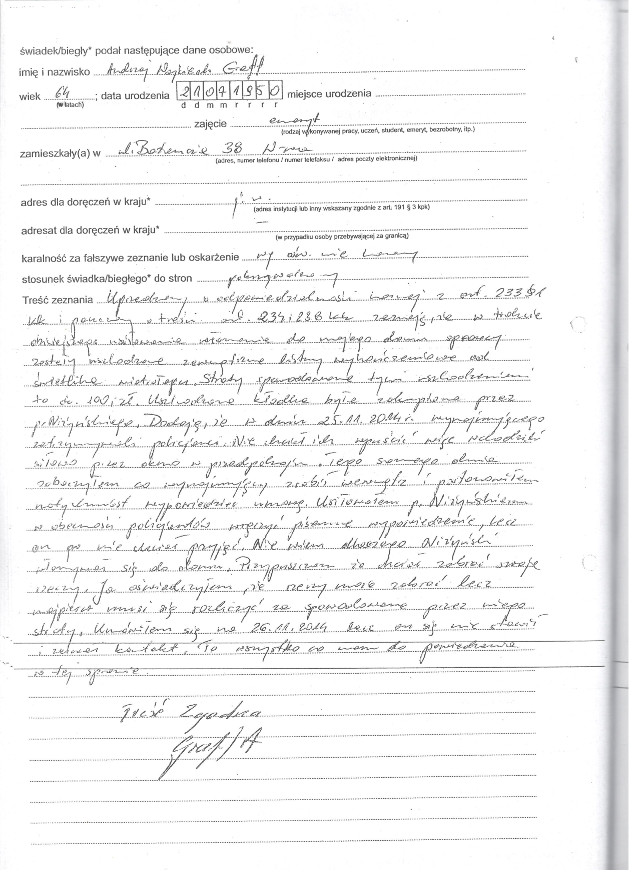 świadek/biegły* podał następujące dane osobowe:
imię i nazwisko Andrzej Graff
wiek 64 ; data urodzenia 21041950 miejsce urodzenia
(w latach) d d m m r r r r
zajęcie emeryt
(rodzaj wykonywanej pracy, uczeń, student, emeryt, bezrobotny, itp.)
zamieszkały(a) w ul. 38
(adres, numer telefonu / numer telefaksu / adres poczty elektronicznej)
adres dla doręczeń w kraju* j. w.
(adres instytucji lub inny wskazany zgodnie z art. 191 § 3 kpk)
adresat dla doręczeń w kraju* –
(w przypadku osoby przebywającej za granicą)
karalność za fałszywe zeznanie lub oskarżenie wg ośw. nie karany
stosunek świadka/biegłego* do stron pokrzywdzony
Treść zeznania Uprzedzony o odpowiedzialności karnej z art. 233 §1
kk i pouczony o treści art. 234 i 238 kk zeznaję, że w trakcie
usiłowania włamania do mojego domu sprawcy
zostały uszkodzone zewnętrzne listwy wykończeniowe od
Straty spowodowane tymi uszkodzeniami
to ok. 100,- zł. Uszkodzona kłódka była zakupiona przez
p. Niżyńskiego. Dodaję, że w dniu 25.11.2014 r. wynajmującego
zatrzymywali policjanci. Nie chciał ich wpuścić więc wchodzili
siłowo przez okno w przedpokoju. Tego samego dnia
zobaczyłem co wynajmujący zrobił wewnątrz i postanowiłem
natychmiast wypowiedzieć umowę. Usiłowałem p. Niżyńskiemu
w obecności policjantów wręczyć pisemne wypowiedzenie, lecz
on go nie chciał przyjąć. Nie wiem dlaczego Niżyński
włamywał się do domu. Przypuszczam że chciał zabrać swoje
rzeczy. Ja oświadczyłem, że rzeczy może zabrać lecz
najpierw musi się rozliczyć za spowodowane przez niego
straty. Umówiłem się na 26.11.2014 lecz on się nie stawił
i zerwał kontakt. To wszystko co mam do powiedzenia
w tej sprawie.
Treść Zgodna
Graff A